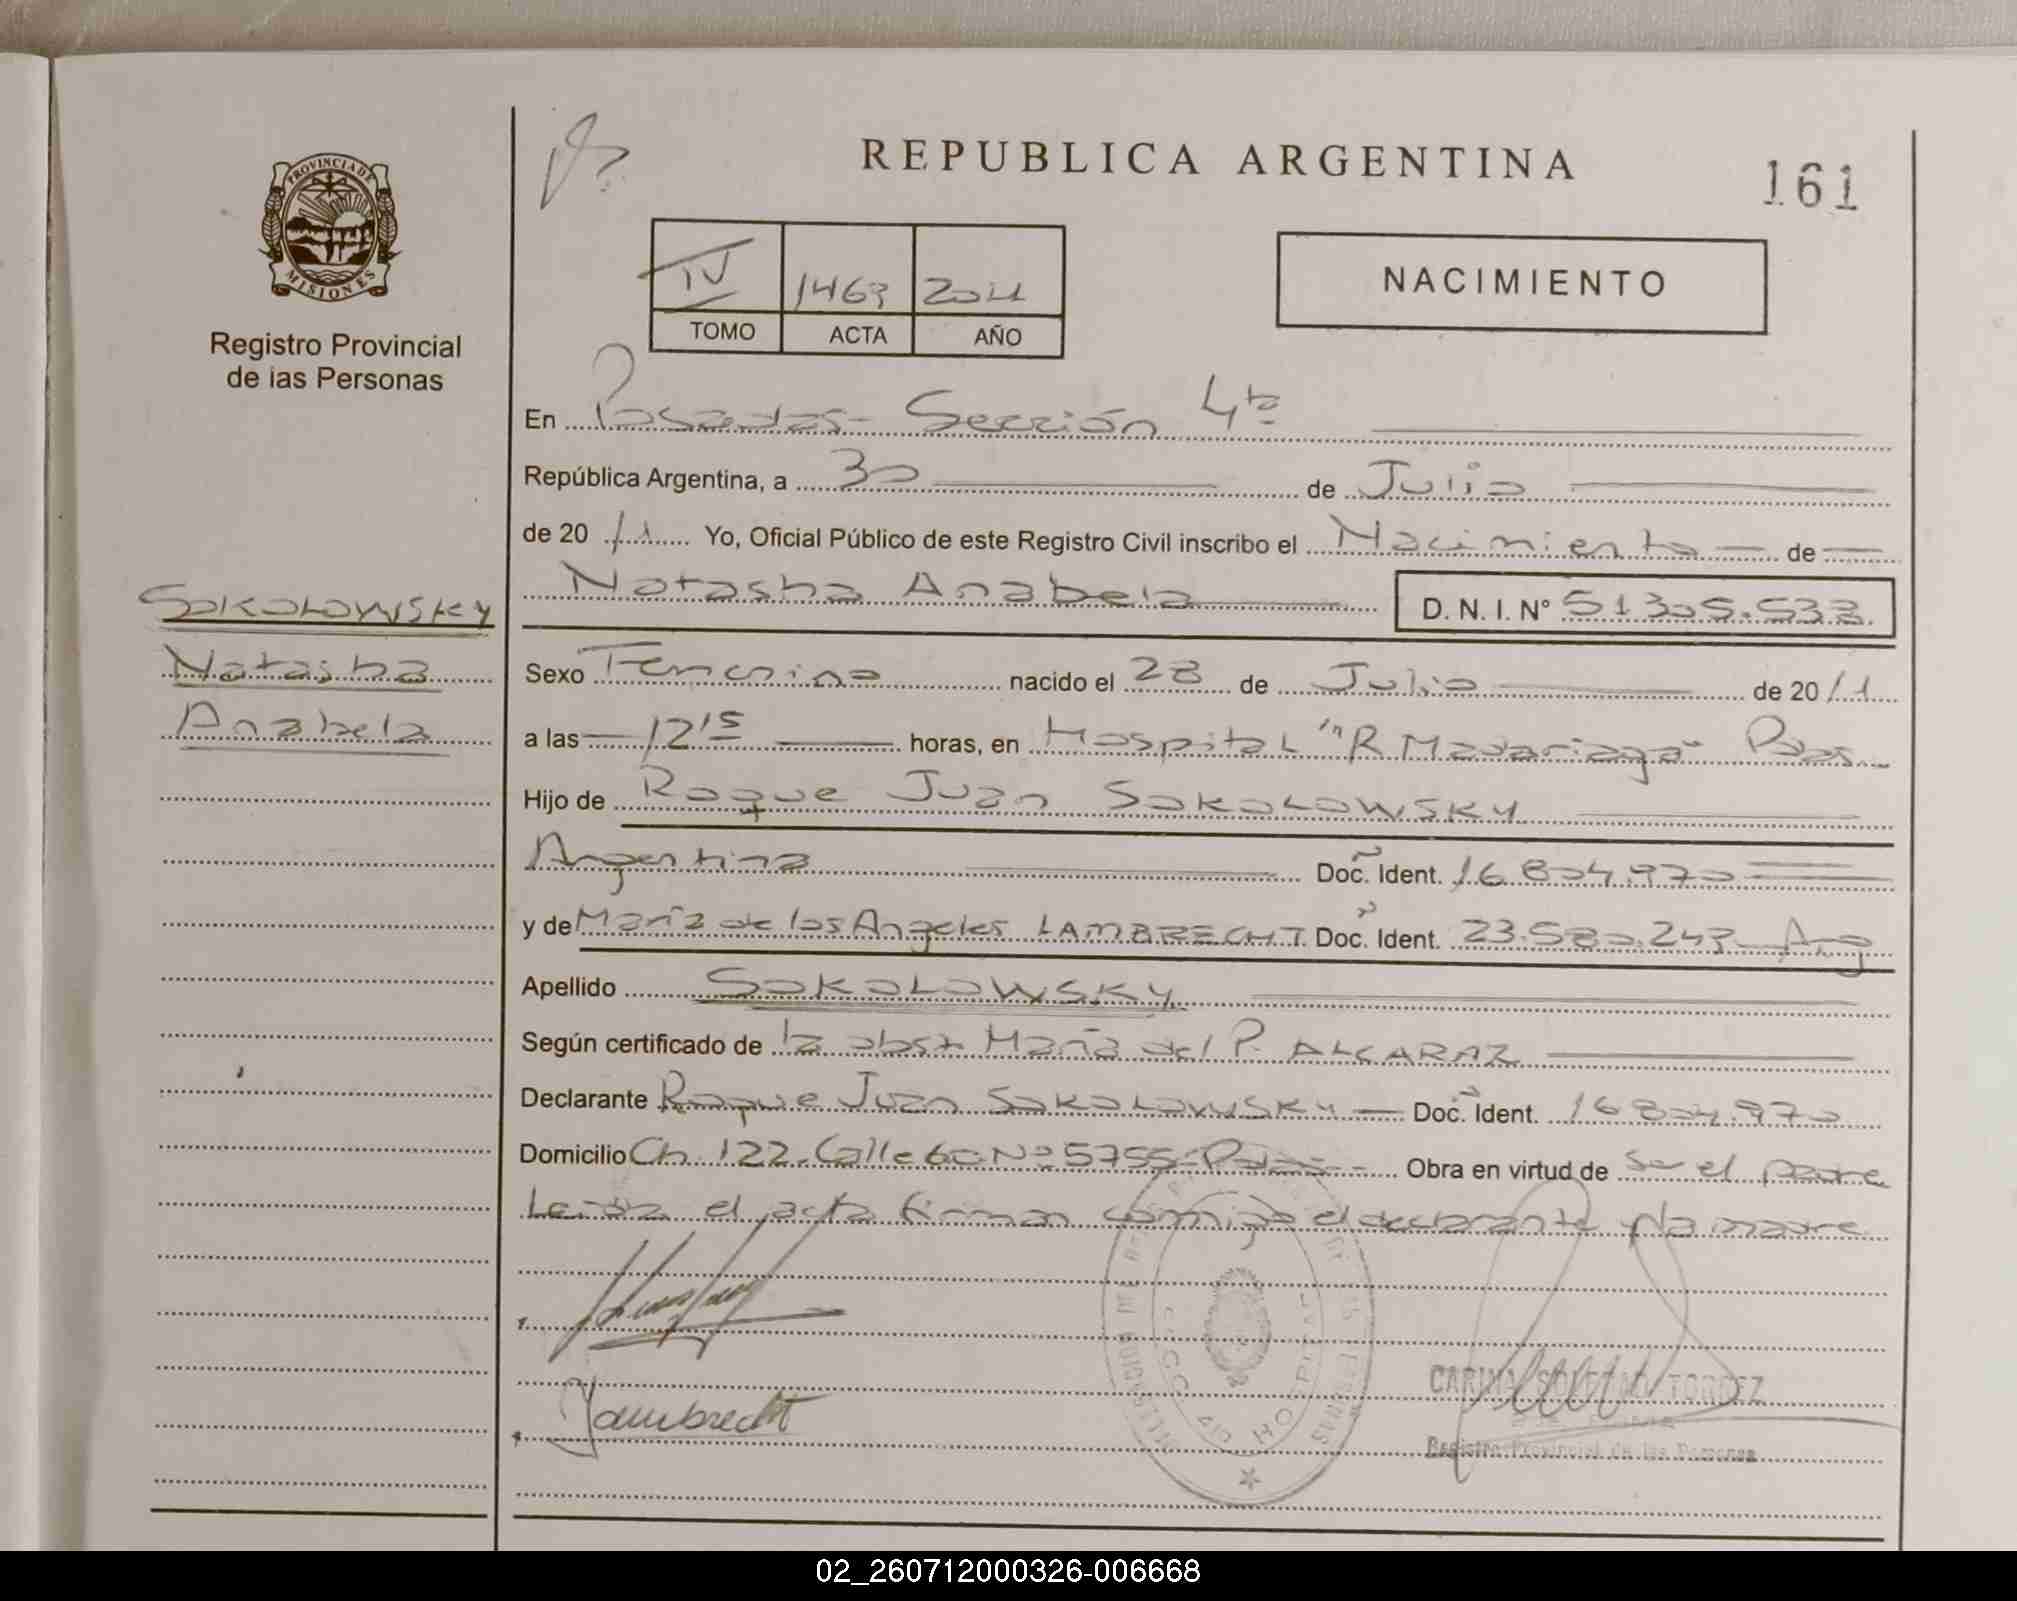 REPUBLICA ARGENTINA
161
PROVINCIA DE
MISIONES
Registro Provincial
de las Personas
IV 1463 2011
TOMO ACTA AÑO
NACIMIENTO
En Posadas - Sección 4ta
República Argentina, a 30 de Julio
de 20 11 Yo, Oficial Público de este Registro Civil inscribo el Nacimiento de
Natasha Anabela D. N. I. Nº 51305.533
SOKOLOWSKY
Natasha
Anabela
Sexo Femenino nacido el 28 de Julio de 20 11
a las 12'15 horas, en Hospital "R Madariaga" Pdas
Hijo de Roque Juan SOKOLOWSKY
Argentina Doc. Ident. 16.804.970
y de María de los Angeles LAMBRECHT Doc. Ident. 23.580.243 Arg
Apellido SOKOLOWSKY
Según certificado de la obst María del P. ALCARAZ
Declarante Roque Juan SOKOLOWSKY Doc. Ident. 16.804.970
Domicilio Ch. 122. Calle 60 Nº 5755 - Pdas - Obra en virtud de ser el padre
Leída el acta firman conmigo el declarante y la madre
Lambrecht
HOSPITAL
CARINA SOLEDAD TORREZ
Registro Provincial de las Personas
02_260712000326-006668